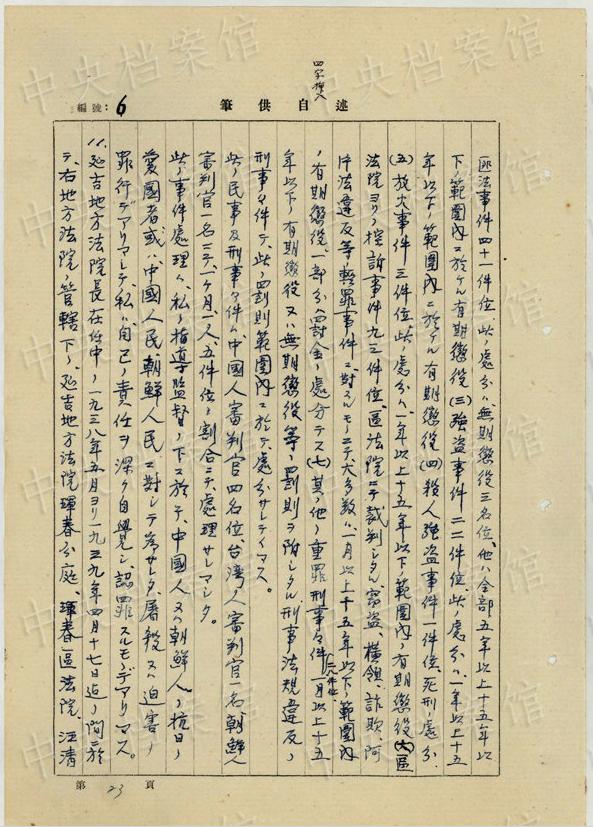 四字挿入
編號：6
述自供筆
匪法事件四十一件位、此ノ処分ハ、無期懲役三名位、他ハ全部五年以上十五年以
下ノ範囲内ニ於ケル有期懲役(三)強盗事件二二件位、此ノ処分ハ一年以上十五
年以下ノ範囲内ニ於ケル有期懲役(四)殺人強盗事件一件位、死刑ノ処分
(五)放火事件三件位此ノ処分ハ一年以上十五年以下ノ範囲内ノ有期懲役(六)區
法院ヨリノ控訴事件九三件位、區法院ニテ裁判シタル、窃盗、横領、詐欺、阿
片法違反等ノ軽罪事件ニ對スルモノニテ大多数ハ一月以上十五年以下ノ範囲内
ノ有期懲役、一部分ハ罰金ノ処分デス(七)其ノ他ノ重罪刑事々件(二九件位)一月以上十五
年以下ノ有期懲役又ハ無期懲役等ノ罰則ヲ附シタル刑事法規違反ノ
刑事々件デ、此ノ罰則範囲内ニ於テ処分サレテイマス。
此ノ民事及刑事々件ハ中國人審判官四名位、台湾人審判官一名、朝鮮人
審判官一名ニテ、一ケ月一人、五件位ノ割合ニテ、処理サレマシタ。
此ノ事件処理ハ、私ノ指導監督ノ下ニ於テ、中國人又ハ朝鮮人ノ抗日ノ
愛國者或ハ中國人民、朝鮮人民ニ對シテ為サレタ、屠殺又ハ迫害ノ
罪行デアリマシテ、私ハ自己ノ責任ヲ深ク自覺シ、認罪スルモノデアリマス。
11.延吉地方法院長在任中ノ一九三八年五月ヨリ一九三九年四月十七日迄ノ間ニ於
テ、右地方法院ノ管轄下ノ、延吉地方法院琿春分庭、琿春區法院、汪清
第 23 頁
中央档案馆